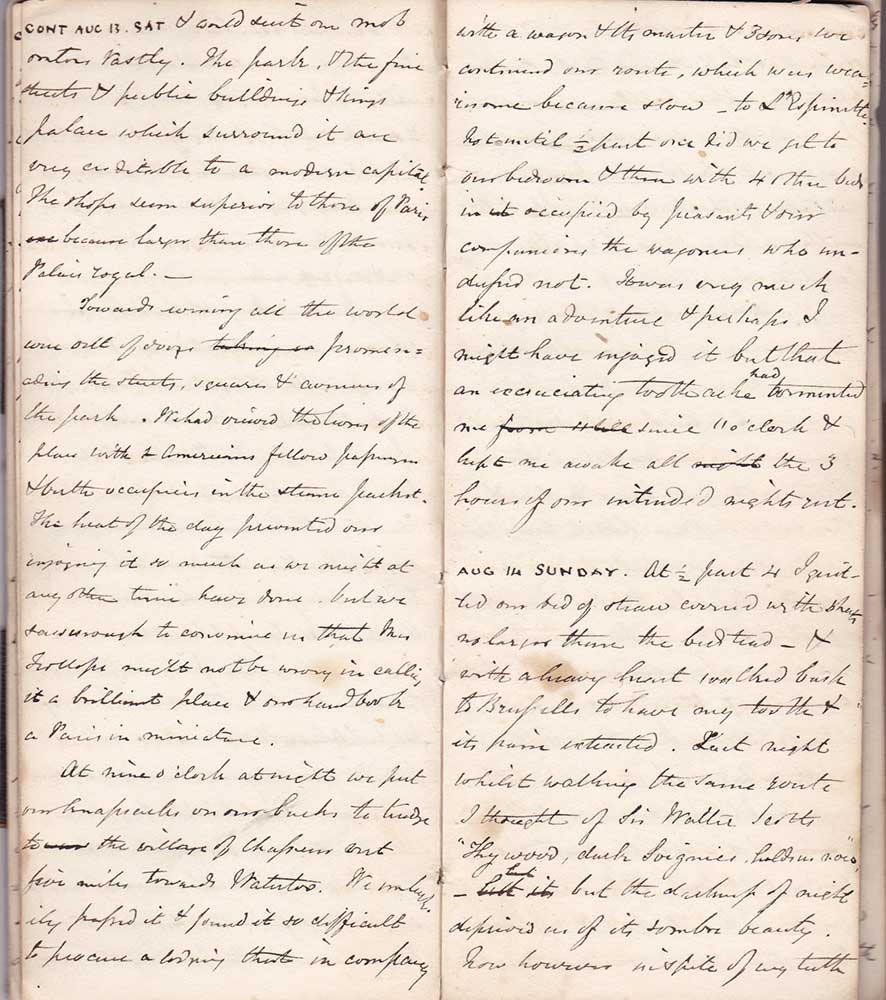 CONT AUG 13. SAT & would suit our mob
orators vastly. The park, & the fine
streets & public buildings & kings
palace which surround it are
very creditable to a modern capital.
The shops seem superior to those of Paris
because larger than those of the
Palais royal. —
Towards evening all the world
were out of doors taking a promen=
ading the streets, squares & avenues of
the park. We had viewed the lions of the
place with 2 Americans fellow passengers
& berth occupiers in the steam packet.
The heat of the day prevented our
enjoying it so much as we might at
any other time have done. but we
saw enough to convince us that Mrs
Trollope might not be wrong in calling
it a brilliant place & our handbook
a Paris in miniature.
At nine o'clock at night we put
our knapsacks on our backs to trudge
to the village of
five miles towards Waterloo. We unluck-
ily passed it & found it so difficult
to procure a lodging that in company
with a wagon & its master & 3 sons we
continued our route, which was wea=
risome because slow — to L'Espinette.
Not until ½ past one did we get to
our bedroom & then with 4 other beds
in it occupied by peasants & our
companions the wagoners who un-
dressed not. It was very much
like an adventure & perhaps I
might have enjoyed it but that
an excruciating tooth ache had tormented
me from since 11 o'clock &
kept me awake all night the 3
hours of our intended nights rest.
AUG 14 SUNDAY. At ½ past 4 I quit-
ted our bed of straw covered with sheets
no larger than the bedstead — &
with a heavy heart walked back
to Brussells to have my tooth &
its pain extracted. Last night
whilst walking the same route
I thought of Sir Walter Scotts
"Thy wood, dark Soignies, holds us now",
— but its but the darkness of night
deprived us of its sombre beauty.
Now however in spite of my teeth